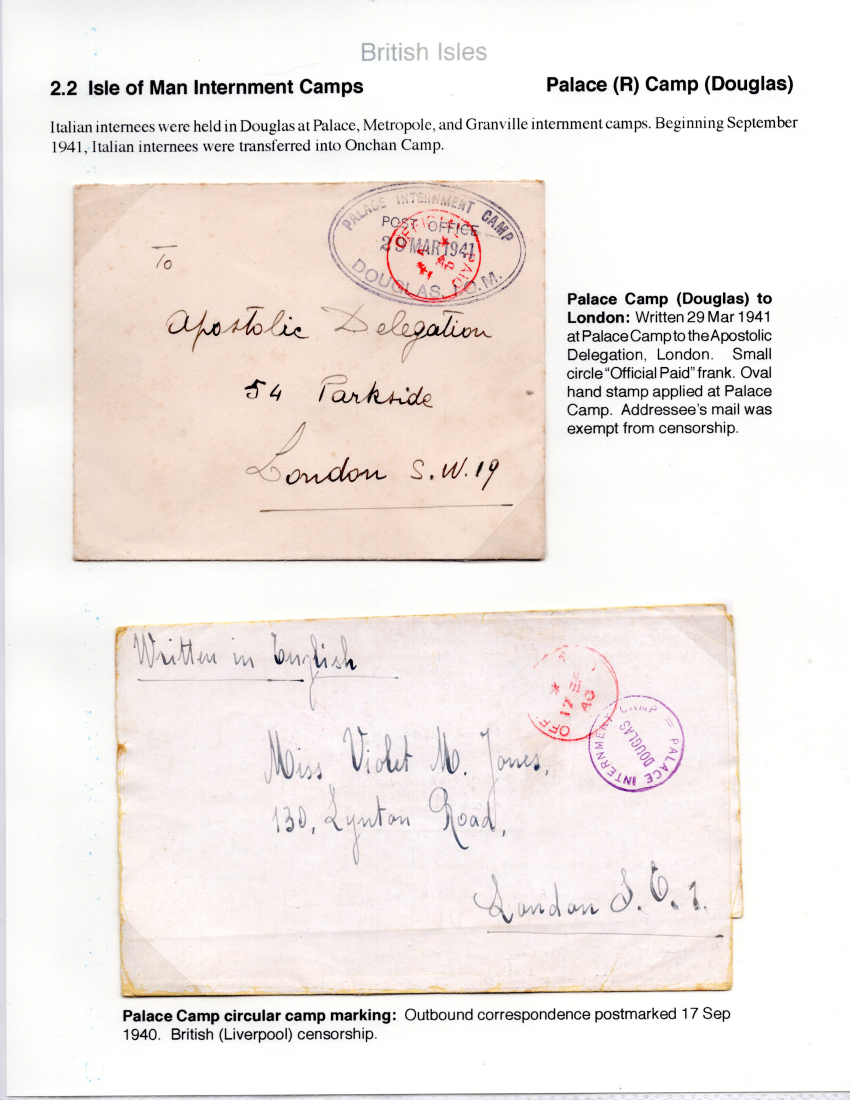 British Isles
2.2 Isle of Man Internment Camps
Palace (R) Camp (Douglas)
Italian internees were held in Douglas at Palace, Metropole, and Granville internment camps. Beginning September
1941, Italian internees were transferred into Onchan Camp.
PALACE INTERNMENT CAMP
POST OFFICE
29 MAR 1941
DOUGLAS, I.O.M.
OFFICIAL PAID
To
Apostolic Delegation
54 Parkside
London S.W.19
Palace Camp (Douglas) to
London: Written 29 Mar 1941
at Palace Camp to the Apostolic
Delegation, London. Small
circle "Official Paid" frank. Oval
hand stamp applied at Palace
Camp. Addressee's mail was
exempt from censorship.
Written in English
17 SE
40
PALACE INTERNMENT CAMP =
DOUGLAS
Miss Violet M. Jones,
130, Lynton Road,
London S.E.1.
Palace Camp circular camp marking: Outbound correspondence postmarked 17 Sep
1940. British (Liverpool) censorship.